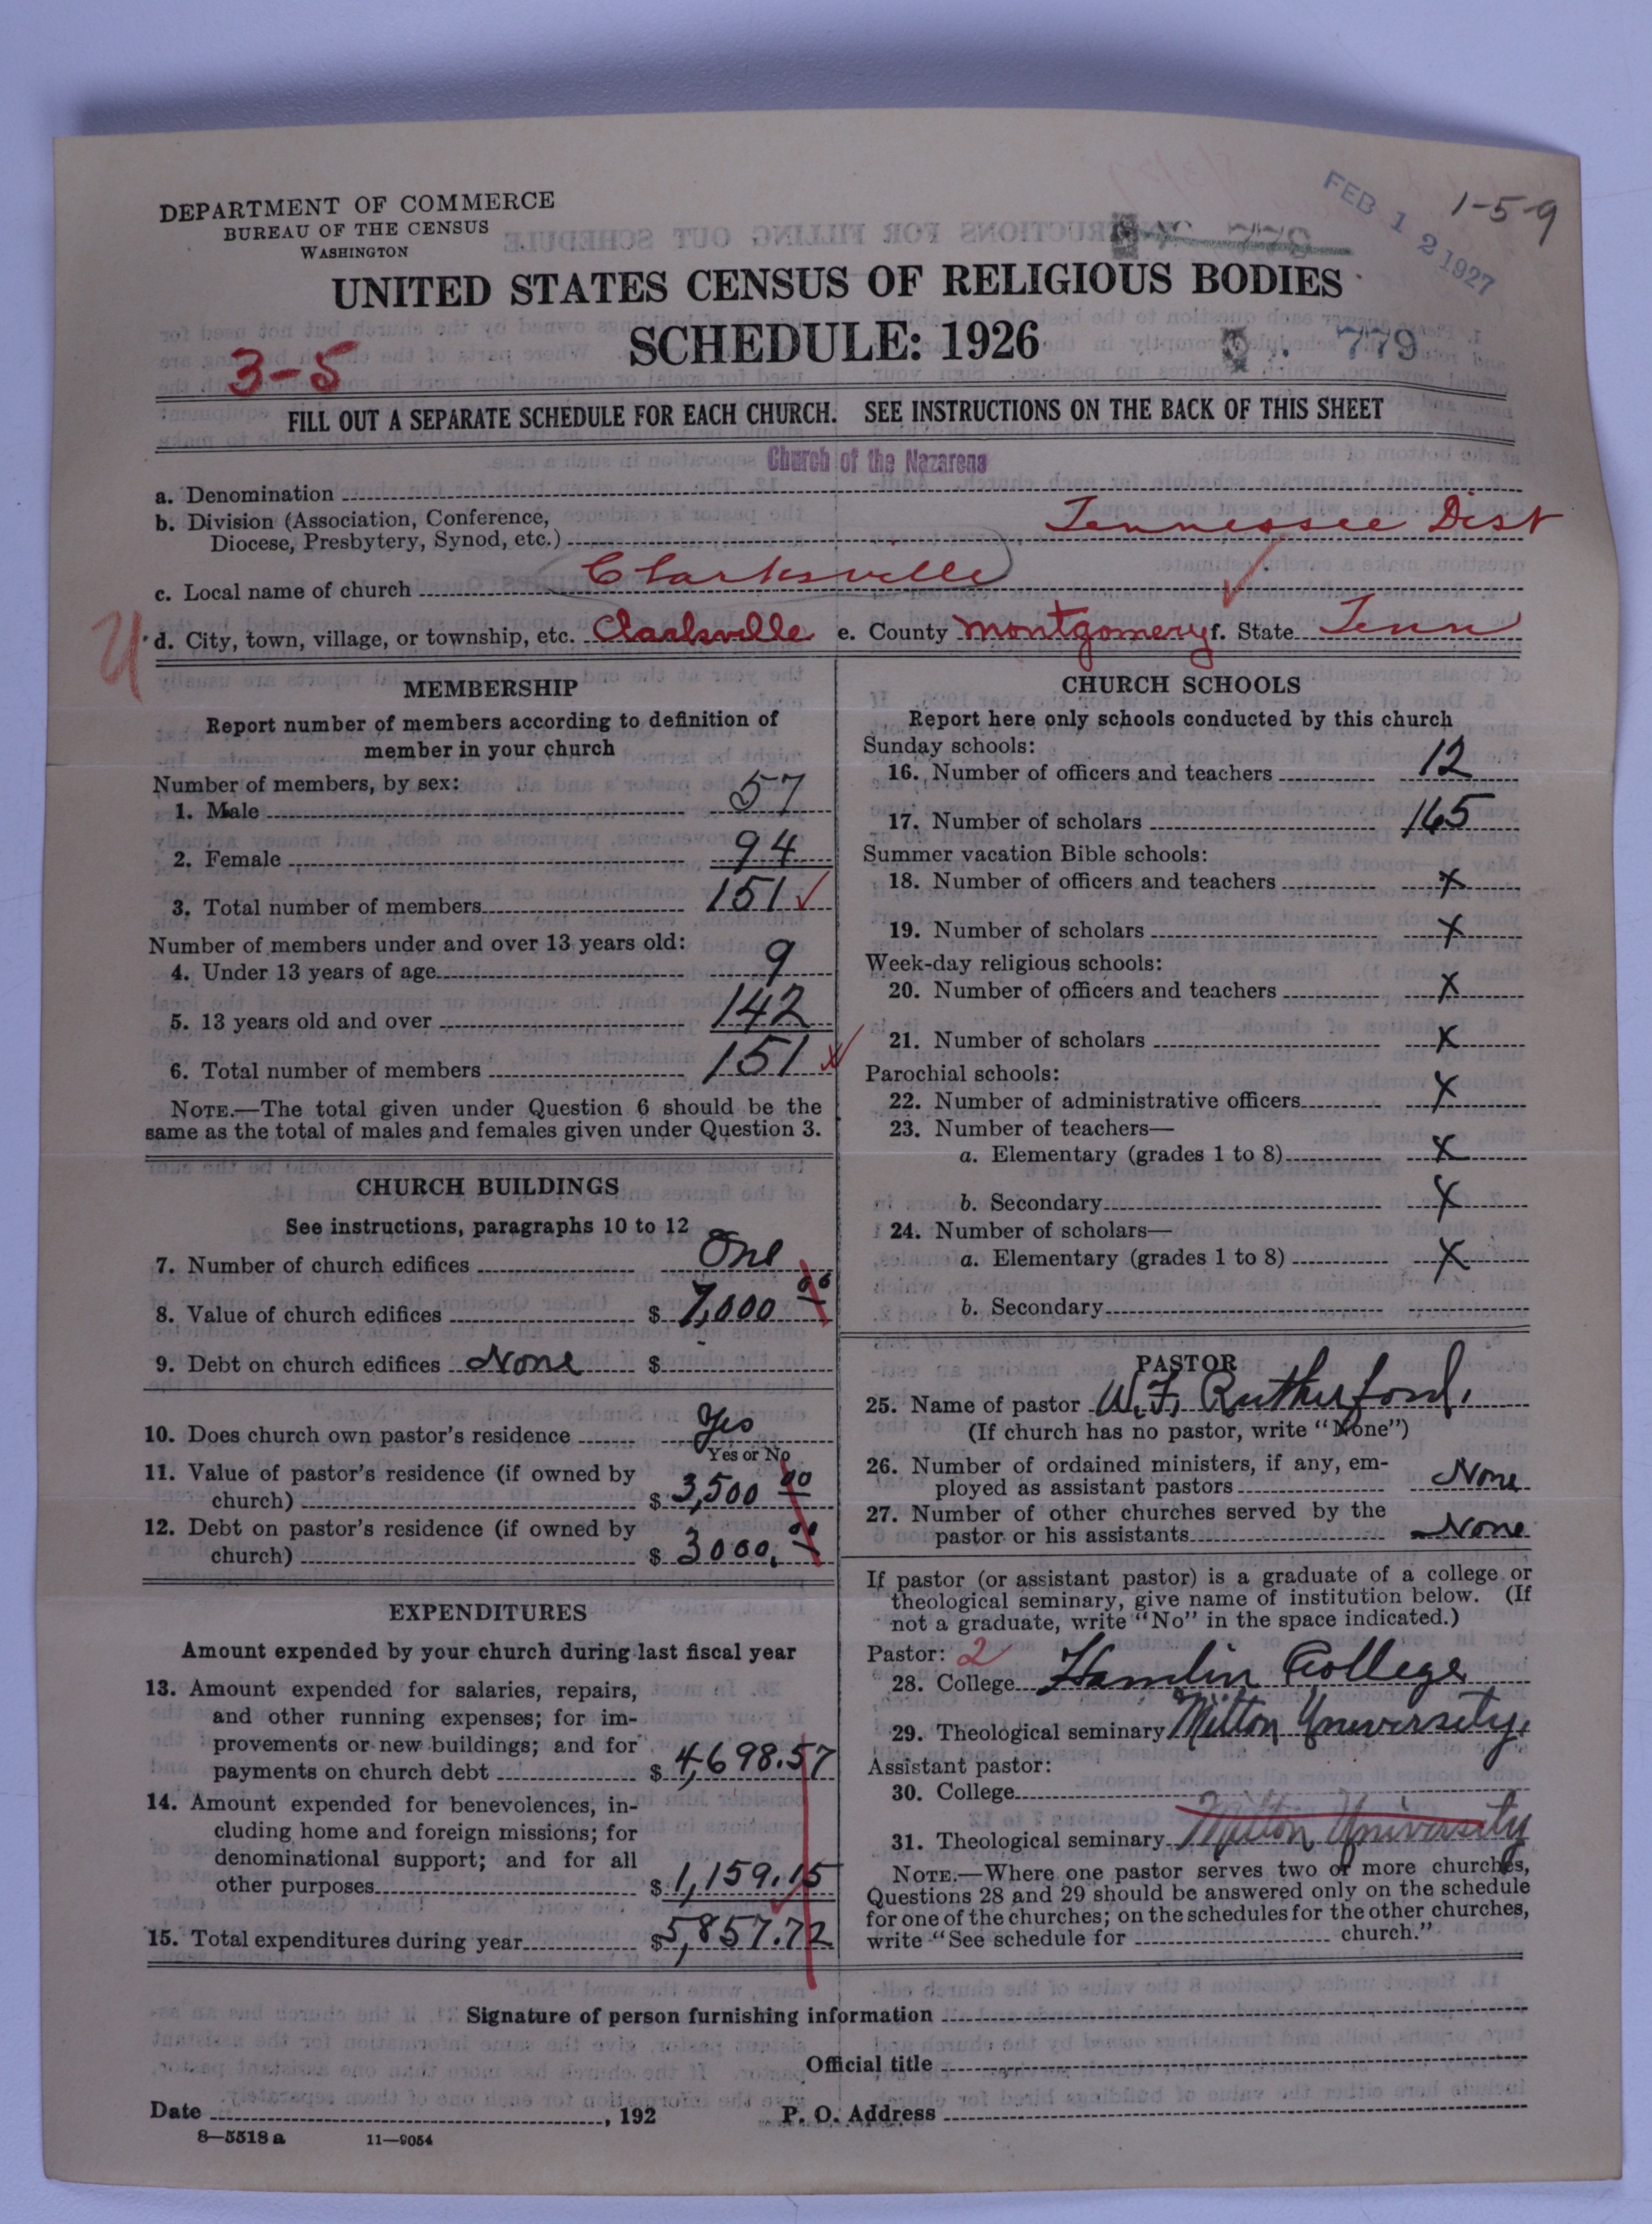 DEPARTMENT OF COMMERCE
BUREAU OF THE CENSUS
WASHINGTON
FEB 12 1927
1-5-9
UNITED STATES CENSUS OF RELIGIOUS BODIES
SCHEDULE: 1926
779
3-5
FILL OUT A SEPARATE SCHEDULE FOR EACH CHURCH. SEE INSTRUCTIONS ON THE BACK OF THIS SHEET
Church of the Nazarene
a. Denomination
b. Division (Association, Conference,
Diocese, Presbytery, Synod, etc.) Tennessee Dist
c. Local name of church Clarksville
d. City, town, village, or township, etc. Clarksville e. County Montgomery f. State Tenn
MEMBERSHIP
Report number of members according to definition of
member in your church
Number of members, by sex:
1. Male 57
2. Female 94
3. Total number of members 151
Number of members under and over 13 years old:
4. Under 13 years of age 9
5. 13 years old and over 142
6. Total number of members 151
NOTE.—The total given under Question 6 should be the
same as the total of males and females given under Question 3.
CHURCH BUILDINGS
See instructions, paragraphs 10 to 12
7. Number of church edifices One
8. Value of church edifices $ 7,000 00
9. Debt on church edifices None $
10. Does church own pastor's residence Yes
Yes or No
11. Value of pastor's residence (if owned by
church) $ 3,500 00
12. Debt on pastor's residence (if owned by
church) $ 3000. 00
EXPENDITURES
Amount expended by your church during last fiscal year
13. Amount expended for salaries, repairs,
and other running expenses; for im-
provements or new buildings; and for
payments on church debt $ 4,698.57
14. Amount expended for benevolences, in-
cluding home and foreign missions; for
denominational support; and for all
other purposes $ 1,159.15
15. Total expenditures during year $ 5,857.72
CHURCH SCHOOLS
Report here only schools conducted by this church
Sunday schools:
16. Number of officers and teachers 12
17. Number of scholars 165
Summer vacation Bible schools:
18. Number of officers and teachers x
19. Number of scholars x
Week-day religious schools:
20. Number of officers and teachers x
21. Number of scholars x
Parochial schools:
22. Number of administrative officers x
23. Number of teachers—
a. Elementary (grades 1 to 8) x
b. Secondary x
24. Number of scholars—
a. Elementary (grades 1 to 8) x
b. Secondary
PASTOR
25. Name of pastor W. F. Rutherford.
(If church has no pastor, write "None")
26. Number of ordained ministers, if any, em-
ployed as assistant pastors None
27. Number of other churches served by the
pastor or his assistants None
If pastor (or assistant pastor) is a graduate of a college or
theological seminary, give name of institution below. (If
not a graduate, write "No" in the space indicated.)
Pastor: 2
28. College Hamlin College
29. Theological seminary Milton University,
Assistant pastor:
30. College
31. Theological seminary Milton University
NOTE.—Where one pastor serves two or more churches,
Questions 28 and 29 should be answered only on the schedule
for one of the churches; on the schedules for the other churches,
write "See schedule for church."
Signature of person furnishing information
Official title
Date , 192 P. O. Address
8—5518 a 11—9054